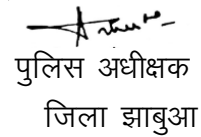 पुलिस अधीक्षक
जिला झाबुआ